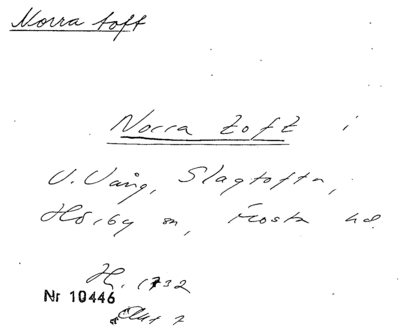 Norra toft
Norra toft i
V. Vång, Slagtofta,
Hörby sn, Frosta hd.
H. 1732
Nr 10446
Akt 7